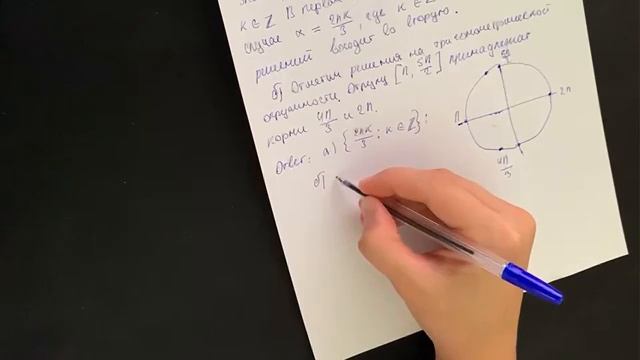 k ∈ Z В первом
случае α = 2πk/3, где k ∈ Z
решений входит во вторую.
б) Отметим решения на тригонометрической
окружности. Отрезку [π, 5π/2] принадлежат
корни 4π/3 и 2π.
Ответ: а) {2πk/3; k ∈ Z};
б)
π
2π
4π/3